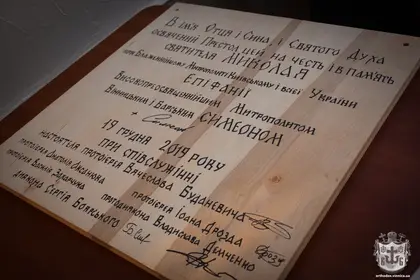 В ім'я Отця і Сина і Святого Духа
освячений Престол цей на честь і в пам'ять
святителя МИКОЛАЯ
при Блаженнійшому Митрополиті Київському і всієї України
ЕПІФАНІЇ
Високопреосвященнійшим Митрополитом
Вінницьким і Барським СИМЕОНОМ
19 грудня 2019 року
при співслужінні
настоятеля протоієрея Вячеслава Буданевича
протоієрея Іоана Дрозда
протодиякона Владислава Демченко
диякона Сергія Боявського
orthodox.vinnica.ua